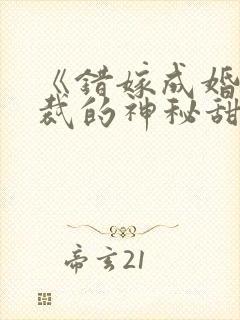 《错嫁成婚
裁的神秘甜
帝玄21